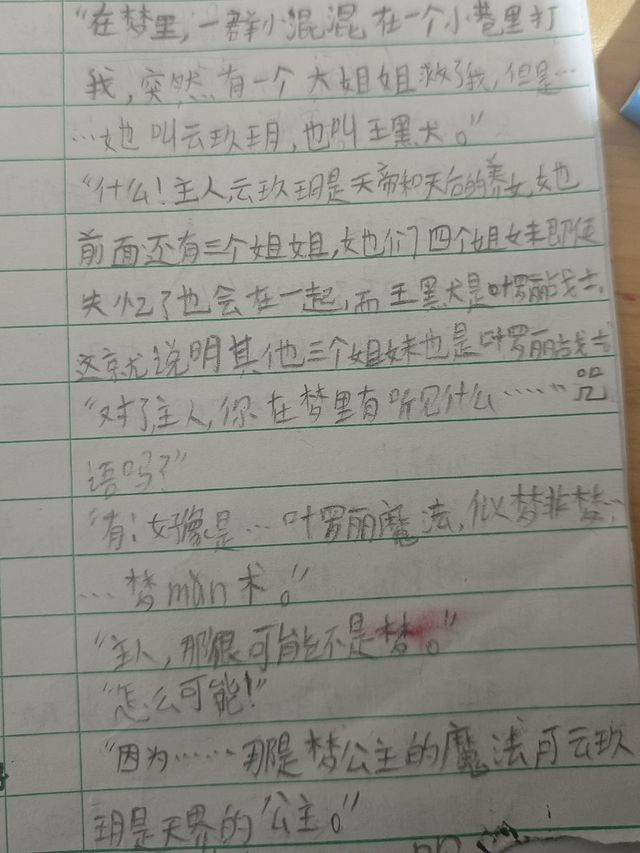 “在梦里，一群小混混在一个小巷里打
我，突然有一个大姐姐救了我，但是…
…她叫云玖玥，也叫王黑犬。”
“什么！主人，云玖玥是天帝和天后的养女，她
前面还有三个姐姐，她们四个姐妹即使
失忆了也会在一起，而王黑犬是叶罗丽战士，
这就说明其他三个姐妹也是叶罗丽战士
“对了，主人，你在梦里有听见什么……咒
语吗？”
“有；好像是…叶罗丽魔法，似梦非梦，
…梦mán术。”
“主人，那很可能不是梦。”
“怎么可能！”
“因为……那是梦公主的魔法可云玖
玥是天界的公主。”